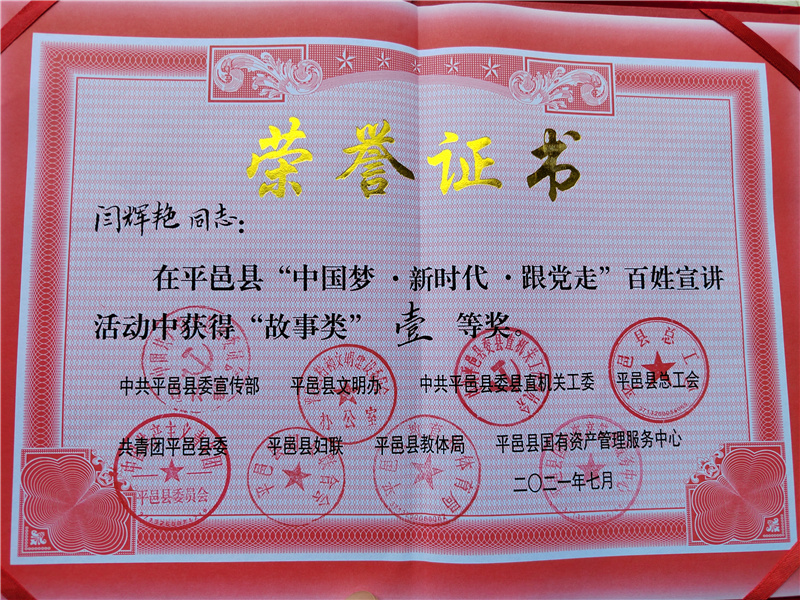 荣誉证书
闫辉艳同志：
在平邑县“中国梦·新时代·跟党走”百姓宣讲
活动中获得“故事类”壹等奖。
中共平邑县委宣传部 平邑县文明办 中共平邑县委县直机关工委 平邑县总工会
共青团平邑县委 平邑县妇联 平邑县教体局 平邑县国有资产管理服务中心
二〇二一年七月
平邑县总工会
办公室
平邑县委员会